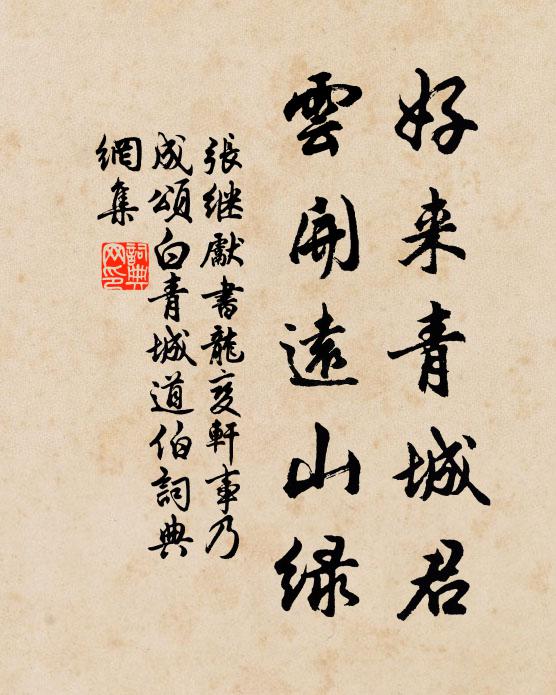 好来青城君
雲開遠山緑
張继獻書龍变軒事乃
成頌白青城道伯詞典
網集
詞典網印